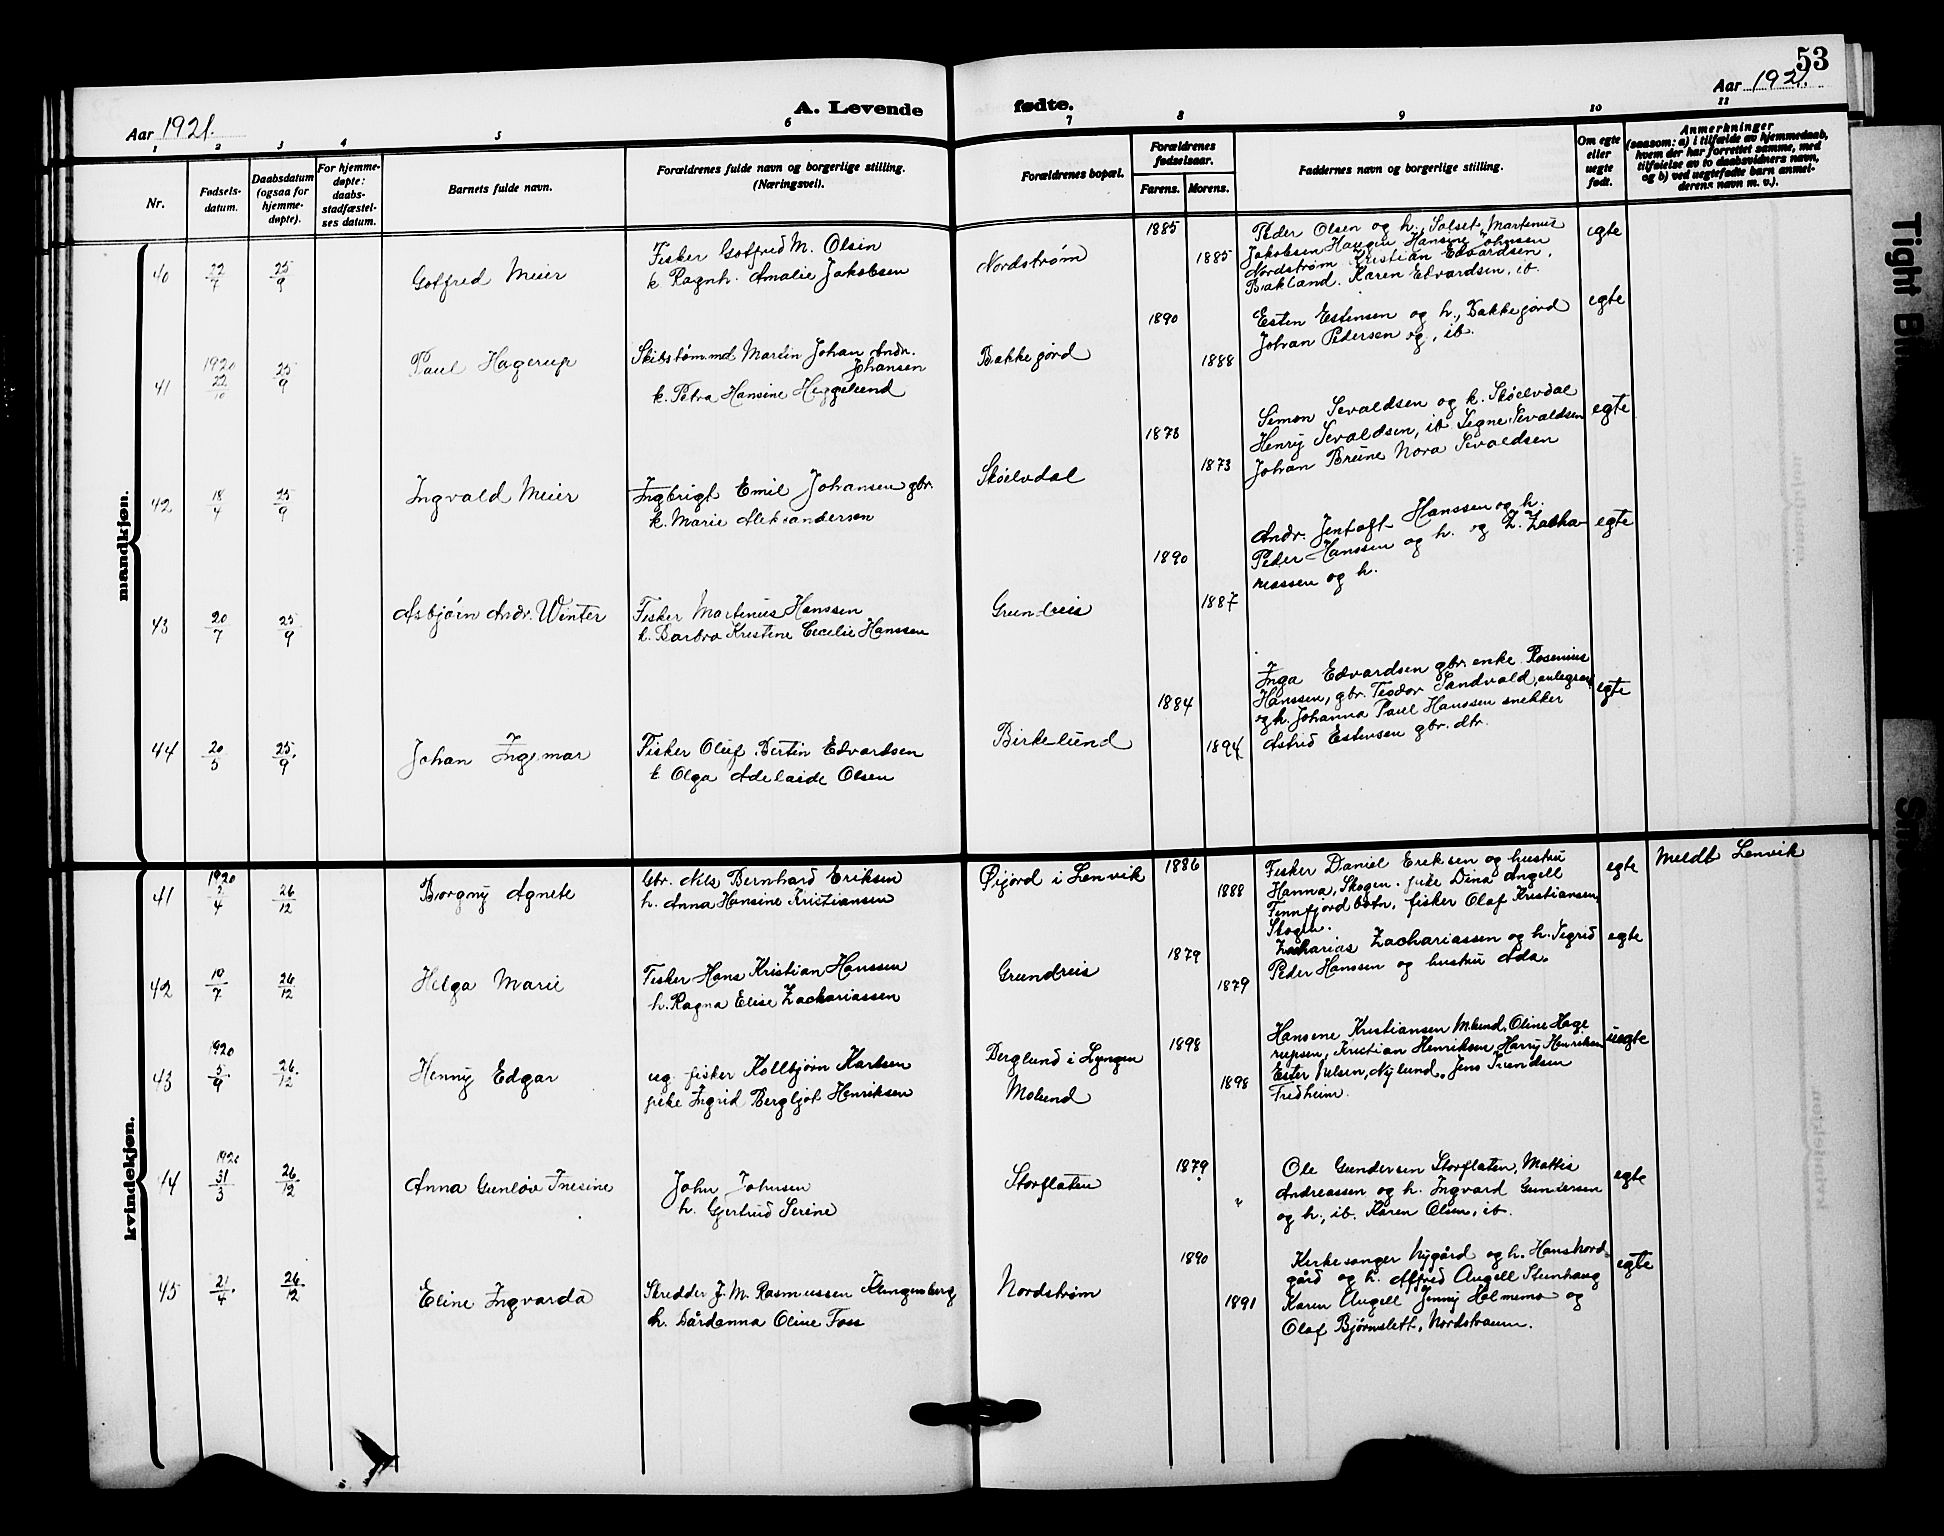 53
Aar 1921.
A. Levende fødte.
Aar 1921.
1 2 3 4 5 6 7 8 9 10 11
Nr.
Fødsels-
datum.
Daabsdatum
(ogsaa for
hjemme-
døpte).
For hjemme-
døpte:
daabs-
stadfæstel-
ses datum.
Barnets fulde navn.
Forældrenes fulde navn og borgerlige stilling.
(Næringsvei).
Forældrenes bopæl.
Forældrenes
fødselsaar.
Farens. Morens.
Faddernes navn og borgerlige stilling.
Om egte
eller
uegte
født.
Anmerkninger
(saasom: a) i tilfælde av hjemmedaab,
hvem der har forrettet samme, med
tilføielse av to daabsvidners navn,
og b) ved uegtefødte barn anmel-
derens navn m. v.).
mandkjøn.
40 22/7 25/9 Gotfred Meier
Fisker Gotfred M. Olsen
k Ragnh. Amalie Jakobsen
Nordstrøm
1885 1885
Peder Olsen og h., Solset, Martenus
Jakobsen Haugen Hansine Johnsen
Nordstrøm Kristian Edvardsen,
Bakland. Karen Edvardsen, ib.
egte
41 1920 22/10 25/9 Paul Hagerup
Skibstøm.md Martin Johan Andr.
Johansen
k. Petra Hansine Heggelund
Bakkejord
1890 1888
Esten Estensen og h., Bakkejord
Johan Pedersen og, ib.
egte
42 18/4 25/9 Ingvald Meier
Ingbrigt Emil Johansen gbr.
k. Marie Aleksandersen
Skøelvdal
1878 1873
Simon Sevaldsen og k. Skøelvdal
Henry Sevaldsen, ib. Signe Sevaldsen
Johan Breine Nora Sevaldsen
egte
43 20/7 25/9 Asbjørn Andr. Winter
Fisker Martenus Hanssen
k. Barbro Kristine Cecilie Hanssen
Grundreis
1890 1887
Andr. Jentoft Hanssen og h.
Peder Hanssen og h. og Z. Zacha-
riassen og h.
egte
44 20/5 25/9 Johan Ingemar
Fisker Oluf Bertin Edvardsen
k Olga Adelaide Olsen
Birkelund
1884 1894
Inga Edvardsen gbr. enke. Rosenius
Hanssen, gbr. Teodor Sandvold,
og h. Johanna Paul Hanssen snekker
Astrid Estensen gbr. dtr.
egte
kvindekjøn.
41 1920 2/4 26/12 Borgny Agnete
Gbr. Nils Bernhard Eriksen
h. Anna Hansine Kristiansen
Øijord i Lenvik
1886 1888
Fisker Daniel Eriksen og hustru
Hanna, Skogen. pike Dina Angell
Finnfjordbotn, fisker Olaf Kristiansen,
Skogen.
egte
Meldt Lenvik
42 10/7 26/12 Helga Marie
Fisker Hans Kristian Hanssen
h. Ragna Elise Zachariassen
Grundreis
1879 1879
Zacharias Zachariassen og h. Sigrid
Peder Hanssen og hustru Ada.
egte
43 1920 5/9 26/12 Henny Edgar
ug. fisker Kollbjørn Karlsen
pike Ingrid Bergljot Henriksen
Berglund i Lyngen
Molund
1898 1898
Hansine Kristiansen Molund, Oline Hage
rupsen, Kristian Henriksen Harry Henriksen
Ester Nilsen, Nylund, Jens Trondsen
Fridheim.
uegte
44 1920 31/3 26/12 Anna Gunløv Inesine
John Johnsen
h. Gjertrud Serine
Storflaten
1879 "
Ole Gundersen Storflaten, Mattis
Andreassen og h. Ingvard Gundersen
og h., ib. Karen Olsen, ib.
egte
45 21/4 26/12 Eline Ingvarda
Skredder J. M. Rasmussen Klingenberg
h. Dårdanna Oline Foss
Nordstrøm
1890 1891
Kirkesanger Nygård og h. Hans Nord-
gård og h. Alfred Angell Stenhaug
Karen Angell Jenny Holmemo og
Olaf Bjørnslett, Nordstraum.
egte